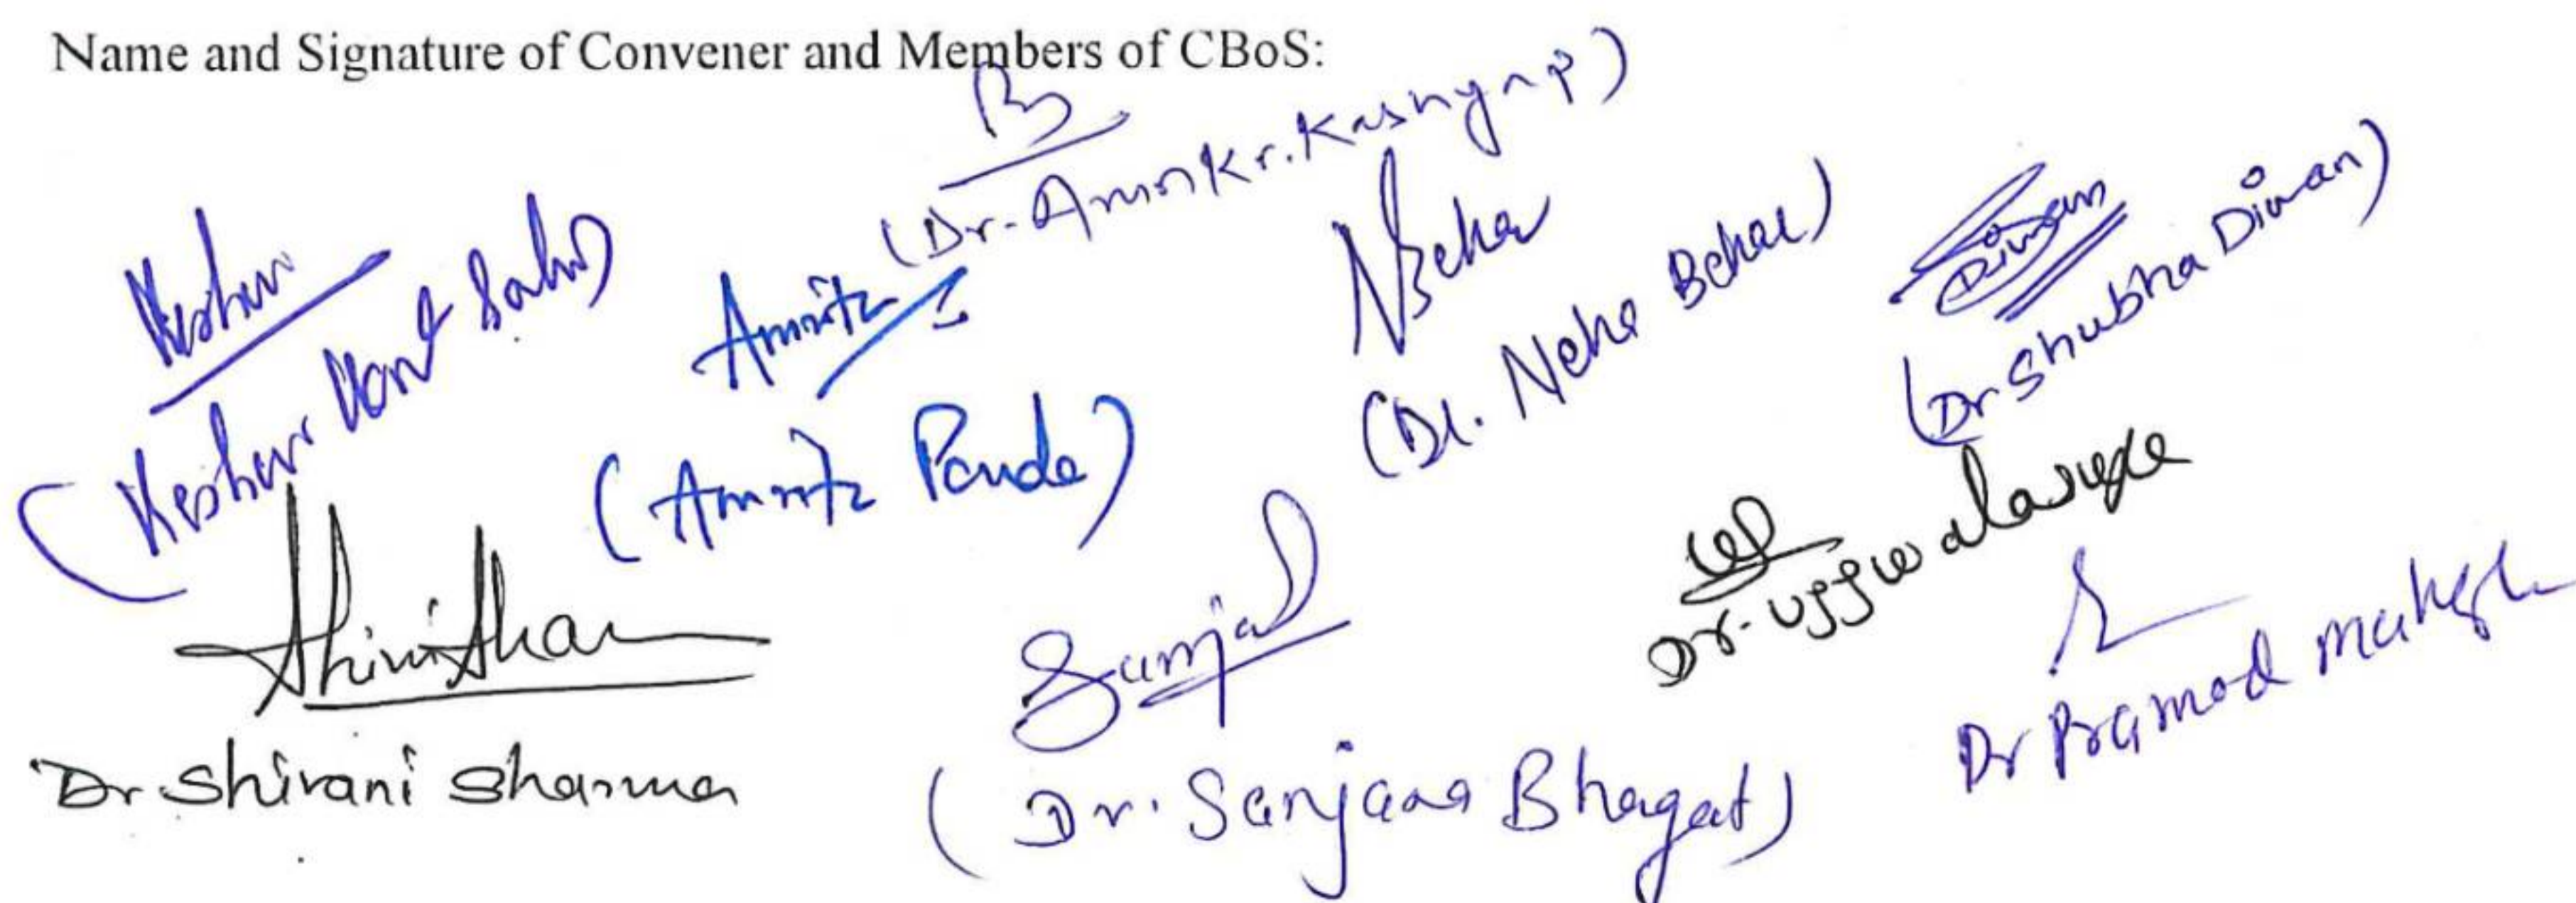 Name and Signature of Convener and Members of CBoS:
(Dr. Arun Kr. Kashyap)
Keshav
(Keshav Kant Sahu)
Amrita
(Amrita Pande)
Neha
(Dr. Neha Behar)
Diwan
(Dr Shubha Diwan)
Dr. Ujjwala
Dr Pramod
Dr Shivani Sharma
Sanja
(Dr. Sanjana Bhagat)